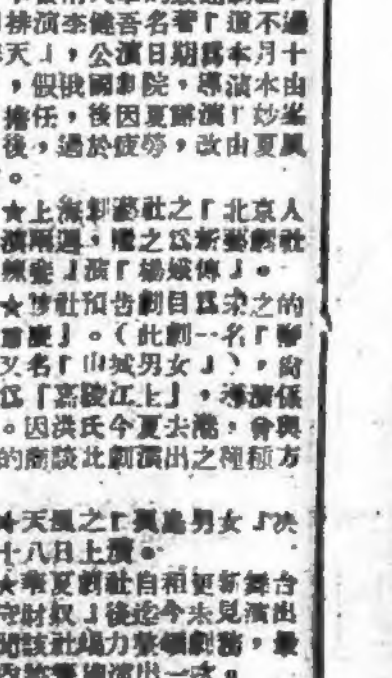 排演李健吾名著「道不遠
天」，公演日期爲本月十
，假俄國劇院，導演本由
擔任，後因夏饒演「妙峯
後，過於疲勞，改由夏風
。
★上海劇藝社之「北京人
演兩週，繼之爲新藝劇社
演「楊娥傳」。
★社預告劇目爲宋之的
」。（此劇一名「
又名「山城男女」），
爲「嘉陵江上」，導演係
。因洪氏今夏去港，曾與
的商談此劇演出之種種方
★天風之「男女」決
十八日上演。
★華夏劇社自租更新舞台
守財奴」後迄今未見演出
聞該社竭力整頓劇務，最
演出一